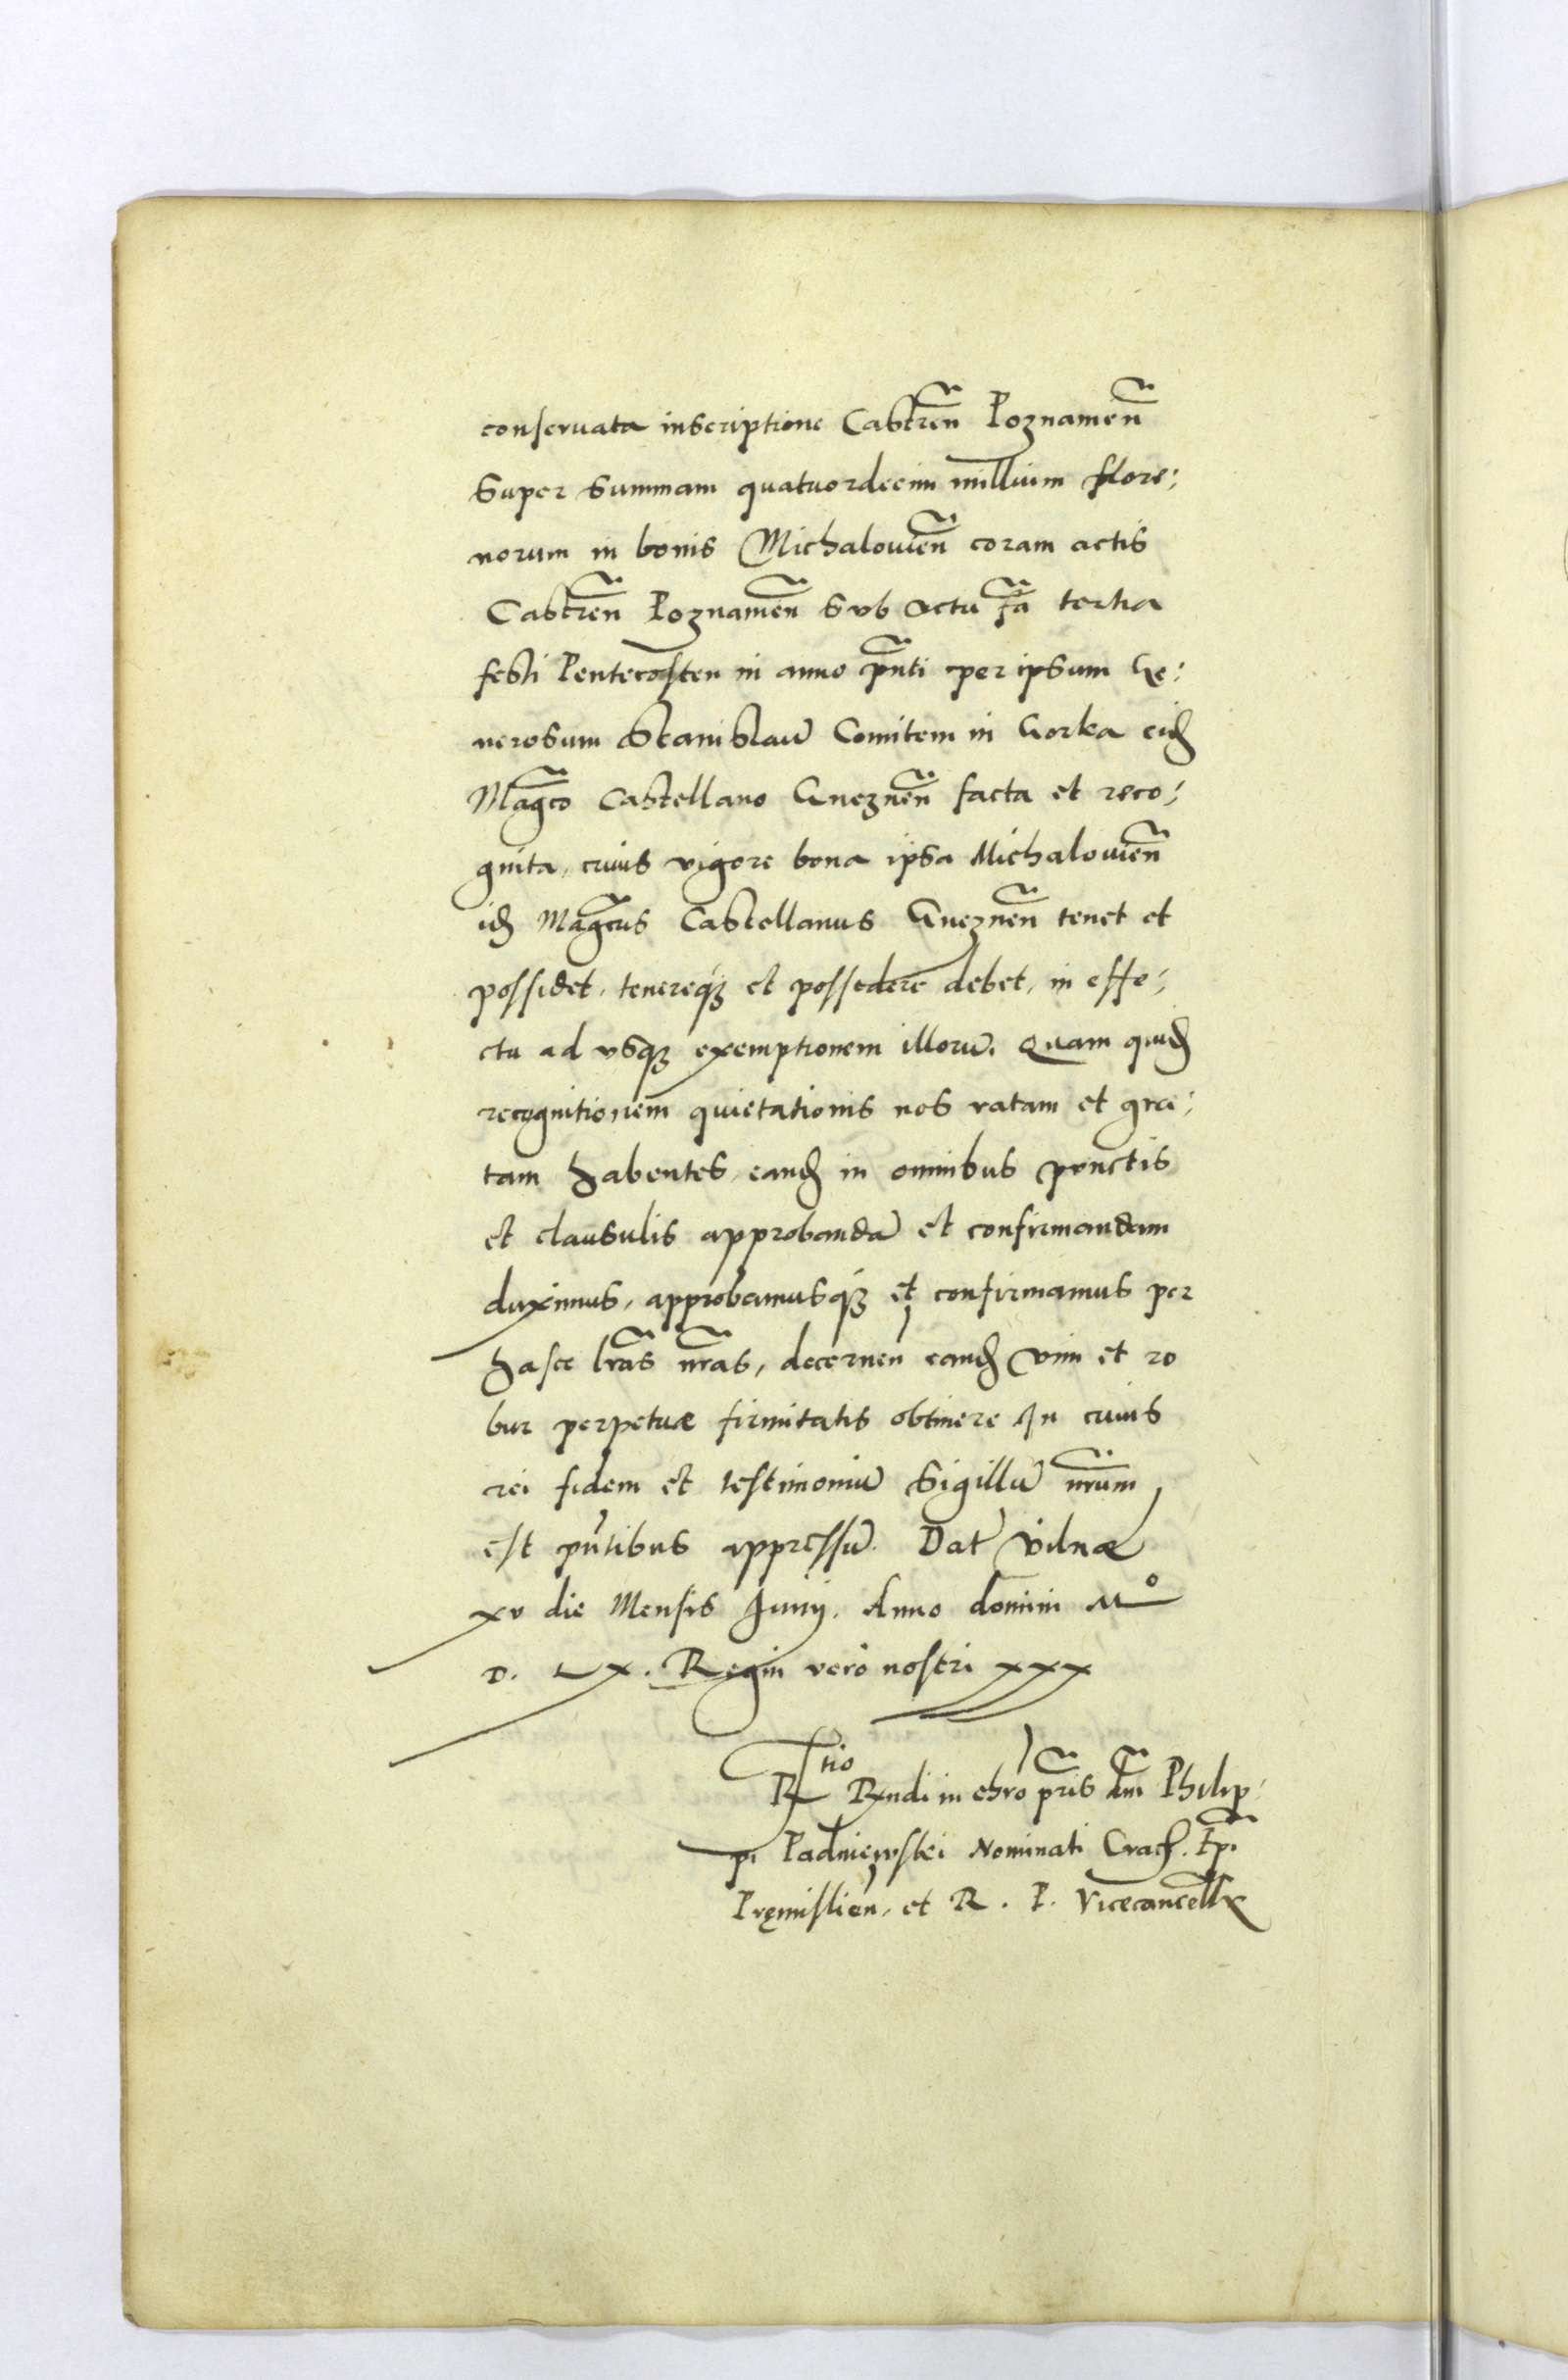 conseruata inscriptione Castren̄ Poznamen̄
super summam quatuordecim millium flore:
norum in bonis Michalouien̄ coram actis
Castren̄ Poznamen̄ sub actu fa̅ tertia
festi Pentecosten in anno pn̅ti per ipsum Ge:
nerosum Stanislau̅ Comitem in Gorka eid̅
Mag̅co Castellano Gneznen̄ facta et reco:
gnita, cuius vigore bona ipsa Michalouien̄
id̅ Mag̅cus Castellanus Gneznen̄ tenet et
possidet, tenereq́ꝫ et possedere debet, in effe:
ctu ad vsqꝫ exemptionem illoru̅. Quam quid̅
recognitionem quietationis nos ratam et gra:
tam habentes, eand̅ in omnibus punctis
et clausulis approbanda̅ et confirmandam
duximus, approbamusq́ꝫ et confirmamus per
hasce lr̅as nr̅as, decernen̄ eand̅ vim et ro
bur perpetuæ firmitatis obtinere In cuius
rei fidem et testimoniu̅ Sigillu̅ nr̅um
est pn̅tibus appressu̅. Dat̅ Vilnæ
xv die Mensis Junij. Anno domini Mº
D. Lx. Regin̄ vero nostri xxx
R̅tio R̅ndi in chro pr̅is dn̅i Philip:
pi Padniewskei Nominati Crac̅. Ep̅i
Pręmislien̄, et R. P. Vicecancell̅